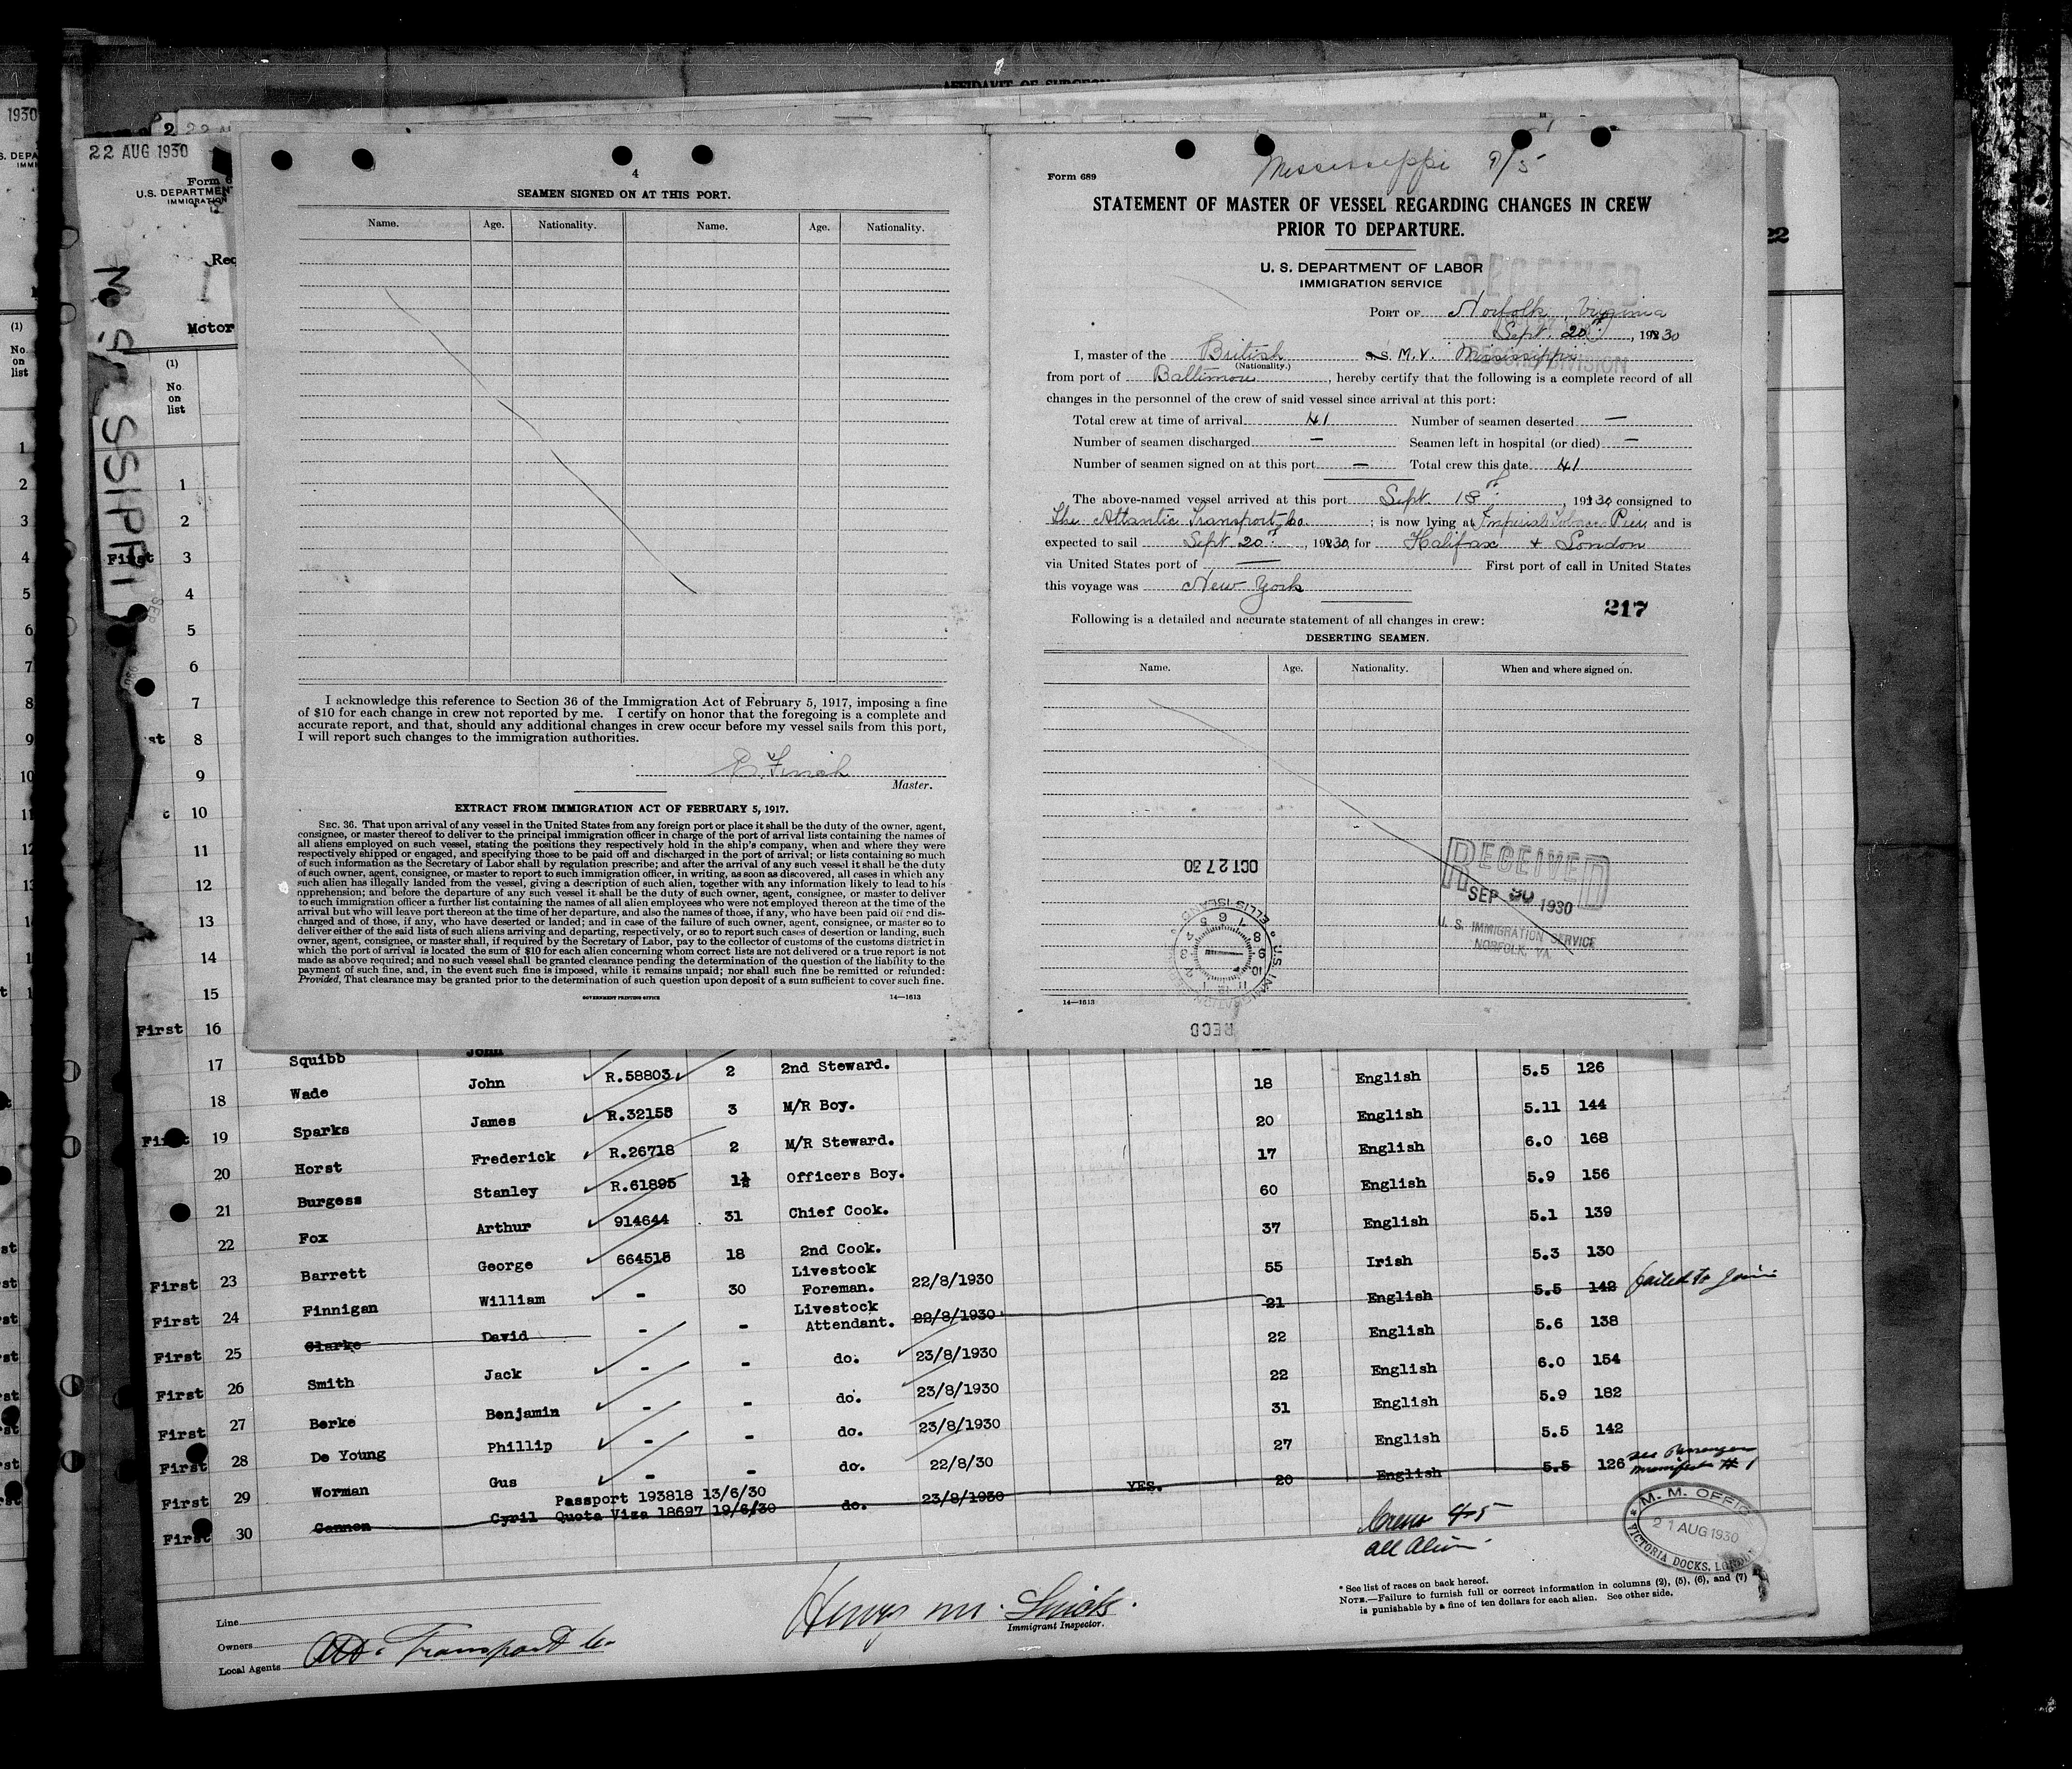 AFFIDAVIT OF SURGEON
1930
22 AUG 1930
Form 6
U.S. DEPARTMEN
IMMIGRATION
Motor
(1)
No. on list
4
SEAMEN SIGNED ON AT THIS PORT.
Name. Age. Nationality. Name. Age. Nationality.
I acknowledge this reference to Section 36 of the Immigration Act of February 5, 1917, imposing a fine
of $10 for each change in crew not reported by me. I certify on honor that the foregoing is a complete and
accurate report, and that, should any additional changes in crew occur before my vessel sails from this port,
I will report such changes to the immigration authorities.
Finch
Master.
EXTRACT FROM IMMIGRATION ACT OF FEBRUARY 5, 1917.
SEC. 36. That upon arrival of any vessel in the United States from any foreign port or place it shall be the duty of the owner, agent,
consignee, or master thereof to deliver to the principal immigration officer in charge of the port of arrival lists containing the names of
all aliens employed on such vessel, stating the positions they respectively hold in the ship's company, when and where they were
respectively shipped or engaged, and specifying those to be paid off and discharged in the port of arrival; or lists containing so much
of such information as the Secretary of Labor shall by regulation prescribe; and after the arrival of any such vessel it shall be the duty
of such owner, agent, consignee, or master to report to such immigration officer, in writing, as soon as discovered, all cases in which any
such alien has illegally landed from the vessel, giving a description of such alien, together with any information likely to lead to his
apprehension; and before the departure of any such vessel it shall be the duty of such owner, agent, consignee, or master to deliver
to such immigration officer a further list containing the names of all alien employees who were not employed thereon at the time of the
arrival but who will leave port thereon at the time of her departure, and also the names of those, if any, who have been paid off and dis-
charged and of those, if any, who have deserted or landed; and in case of the failure of such owner, agent, consignee, or master so to
deliver either of the said lists of such aliens arriving and departing, respectively, or so to report such cases of desertion or landing, such
owner, agent, consignee, or master, shall, if required by the Secretary of Labor, pay to the collector of customs of the customs district in
which the port of arrival is located the sum of $10 for each alien concerning whom correct lists are not delivered or a true report is not
made as above required; and no such vessel shall be granted clearance pending the determination of the question of the liability to the
payment of such fine, and, in the event such fine is imposed, while it remains unpaid; nor shall such fine be remitted or refunded:
Provided, That clearance may be granted prior to the determination of such question upon deposit of a sum sufficient to cover such fine.
GOVERNMENT PRINTING OFFICE 14—1613
Mississippi 9/5
Form 689
STATEMENT OF MASTER OF VESSEL REGARDING CHANGES IN CREW
PRIOR TO DEPARTURE.
U. S. DEPARTMENT OF LABOR
IMMIGRATION SERVICE
RECEIVED
DIVISION
PORT OF Norfolk, Virginia
Sept. 20th, 1930
I, master of the British S. M.V. Mississippi
(Nationality.)
from port of Baltimore, hereby certify that the following is a complete record of all
changes in the personnel of the crew of said vessel since arrival at this port:
Total crew at time of arrival 41 Number of seamen deserted —
Number of seamen discharged — Seamen left in hospital (or died) —
Number of seamen signed on at this port — Total crew this date 41
The above-named vessel arrived at this port Sept. 18th, 1930, consigned to
The Atlantic Transport Co.; is now lying at Imperial Tobacco Pier and is
expected to sail Sept 20th, 1930, for Halifax + London
via United States port of — First port of call in United States
this voyage was New York
217
Following is a detailed and accurate statement of all changes in crew:
DESERTING SEAMEN.
Name. Age. Nationality. When and where signed on.
OCT 27 30
RECEIVED
SEP 30 1930
U. S. IMMIGRATION SERVICE
NORFOLK, VA.
ELLIS ISLAND
RECD
14—1613
17 Squibb John
18 Wade John R.58803 2 2nd Steward. 18 English 5.5 126
First 19 Sparks James R.32158 3 M/R Boy. 20 English 5.11 144
20 Horst Frederick R.26718 2 M/R Steward. 17 English 6.0 168
21 Burgess Stanley R.61895 1½ Officers Boy. 60 English 5.9 156
22 Fox Arthur 914644 31 Chief Cook. 37 English 5.1 139
First 23 Barrett George 664515 18 2nd Cook. 55 Irish 5.3 130
First 24 Finnigan William - 30 Livestock Foreman. 22/8/1930 21 English 5.5 142 failed to join
First 25 Clarke David - - Livestock Attendant. 22/8/1930 22 English 5.6 138
First 26 Smith Jack - - do. 23/8/1930 22 English 6.0 154
First 27 Berke Benjamin - - do. 23/8/1930 31 English 5.9 182
First 28 De Young Phillip - - do. 23/8/1930 27 English 5.5 142
First 29 Worman Gus - - do. 22/8/30 YES. 20 English 5.5 126 see Passenger Manifest # 1
Passport 193818 13/6/30
First 30 Cannon Cyril Quota Viza 18697 19/6/30 do. 23/8/1930
Crew 45
all Alien
M. M. OFFICE
21 AUG 1930
VICTORIA DOCKS, LONDON
* See list of races on back hereof.
NOTE.—Failure to furnish full or correct information in columns (2), (5), (6), and (7)
is punishable by a fine of ten dollars for each alien. See other side.
Line
Owners
Local Agents Atl. Transport Co
Henry M.
Immigrant Inspector.